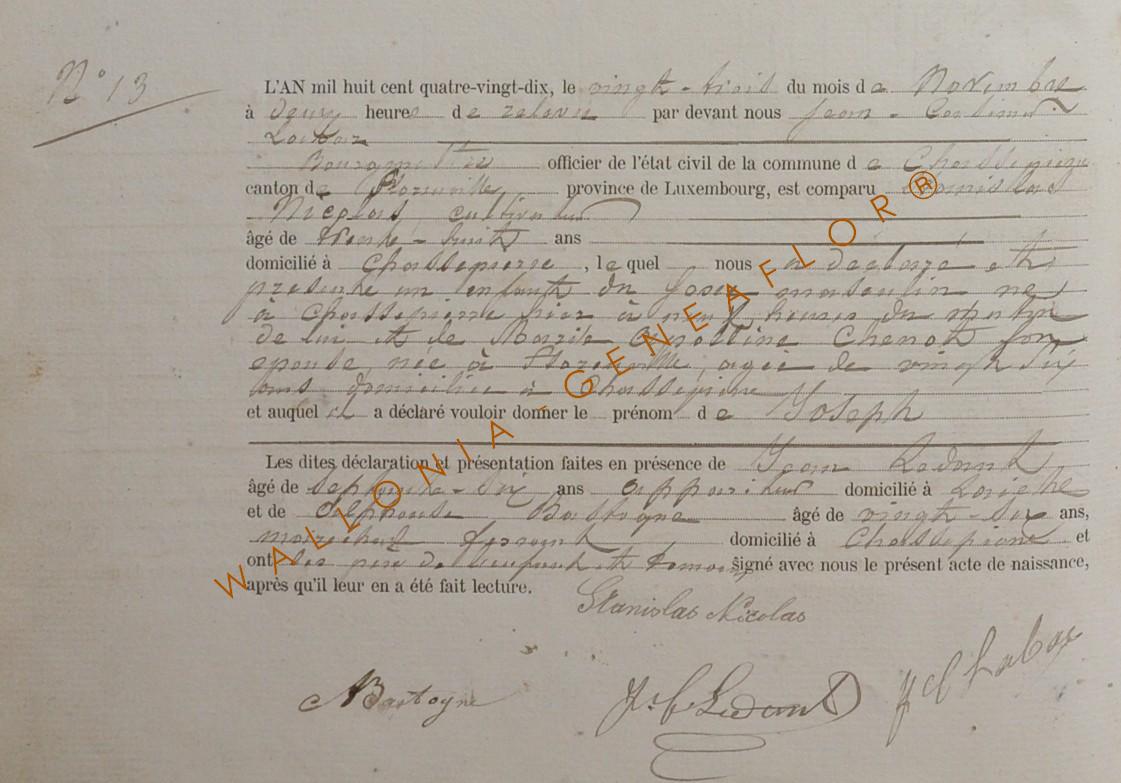 N° 13
L'AN mil huit cent quatre-vingt-dix, le vingt-trois du mois de Novembre
à deux heures de relevée par devant nous Jean-
Bourgmestre officier de l'état civil de la commune de Chassepierre
canton de Florenville, province de Luxembourg, est comparu Stanislas
Nicolas, cultivateur
âgé de trente-huit ans
domicilié à Chassepierre, lequel nous a déclaré et
présenté un enfant du sexe masculin né
à Chassepierre hier à neuf heures du matin
de lui et de Marie Chenot son
épouse, née à Florenville, agée de vingt six
ans domiciliée à Chassepierre
et auquel il a déclaré vouloir donner le prénom de Joseph
Les dites déclaration et présentation faites en présence de Jean Ledant
âgé de septante-six ans appariteur domicilié à
et de Alphonse Bastogne âgé de vingt-six ans,
maréchal ferrant domicilié à Chassepierre et
ont les père de l'enfant et témoins signé avec nous le présent acte de naissance,
après qu'il leur en a été fait lecture.
Stanislas Nicolas
A Bastogne J. Ledant
WALLONIA - GENEAFLOR ®